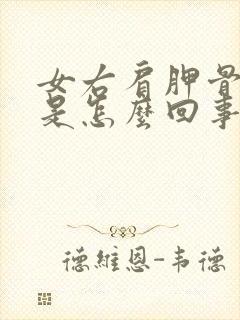 女右肩胛骨
是怎麼回事
德維恩-韦德